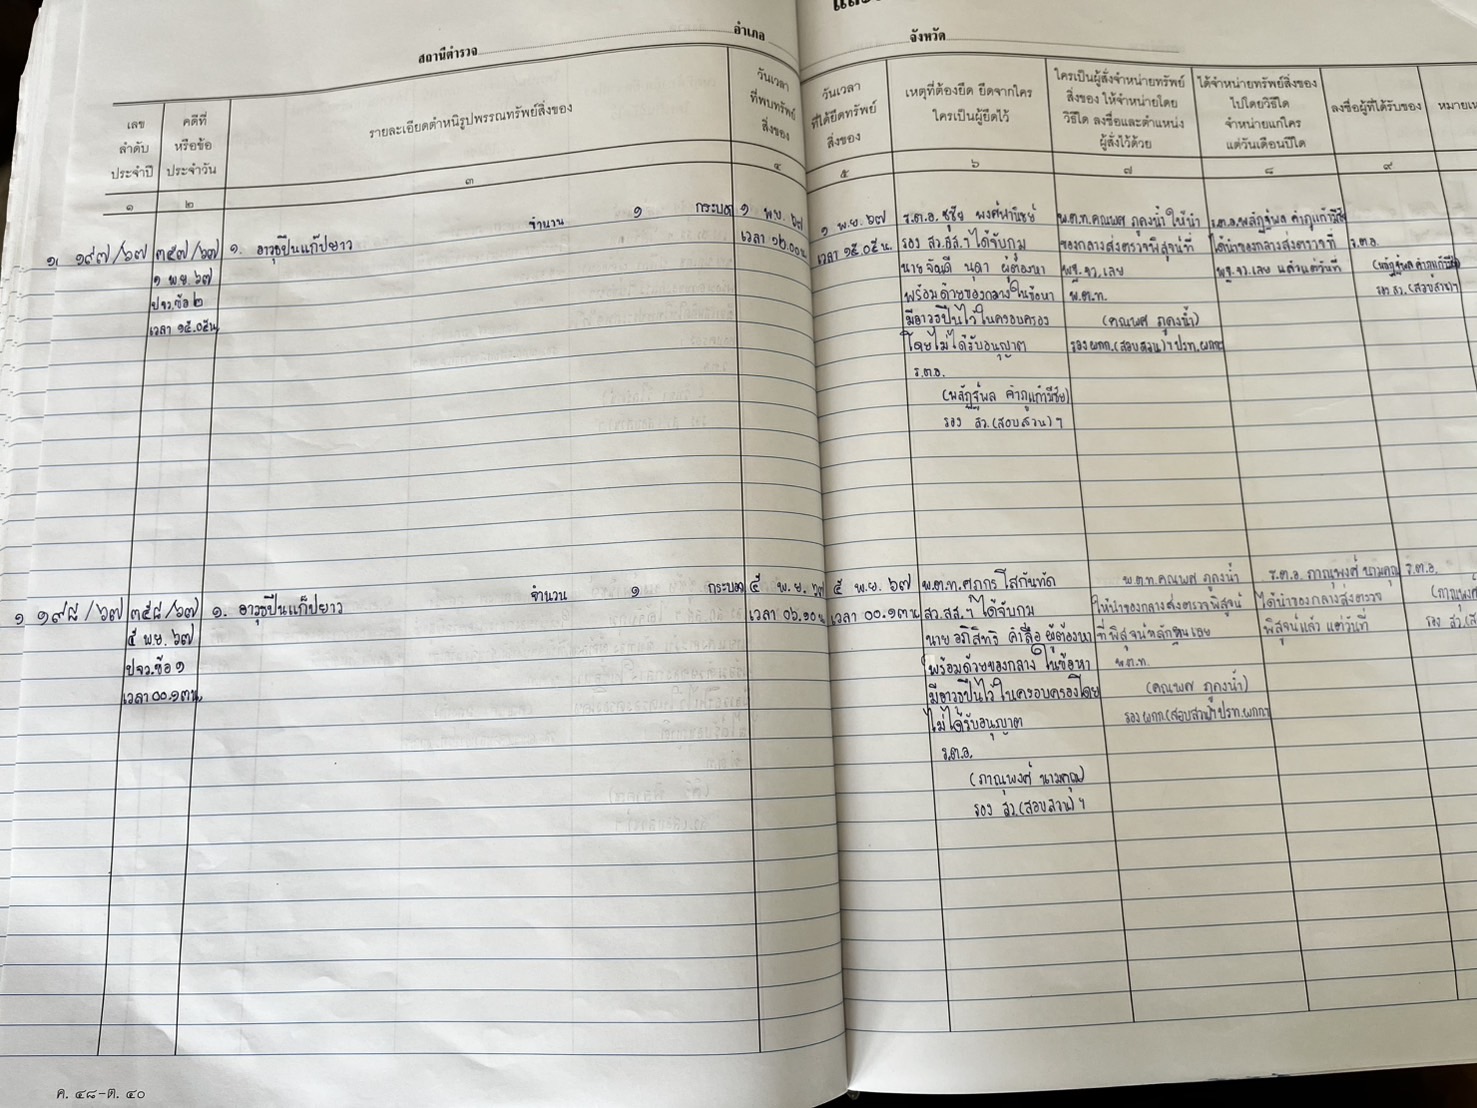 สถานีตำรวจ
อำเภอ
จังหวัด
เลข
ลำดับ
ประจำปี
คดีที่
หรือข้อ
ประจำวัน
รายละเอียดตำหนิรูปพรรณทรัพย์สิ่งของ
วันเวลา
ที่พบทรัพย์
สิ่งของ
วันเวลา
ที่ได้ยึดทรัพย์
สิ่งของ
เหตุที่ต้องยึด ยึดจากใคร
ใครเป็นผู้ยึดไว้
ใครเป็นผู้สั่งจำหน่ายทรัพย์
สิ่งของ ให้จำหน่ายโดย
วิธีใด ลงชื่อและตำแหน่ง
ผู้สั่งไว้ด้วย
ได้จำหน่ายทรัพย์สิ่งของ
ไปโดยวิธีใด
จำหน่ายแก่ใคร
แต่วันเดือนปีใด
ลงชื่อผู้ที่ได้รับของ
๑
๒
๓
๔
๕
๖
๗
๘
๙
๑๙๗/๖๗
๓๕๗/๖๗
๑ พ.ย. ๖๗
ปจว.ข้อ ๒
เวลา ๑๕.๐๕น.
๑. อาวุธปืนแก๊ปยาว
จำนวน ๑ กระบอก
๑ พ.ย. ๖๗
เวลา ๑๒.๐๐น.
๑ พ.ย. ๖๗
เวลา ๑๕.๐๕น.
ร.ต.อ. ชูชัย พงศ์พานิชย์
รอง สว.สส.ฯ ได้จับกุม
นาย ผู้ต้องหา
พร้อมด้วยของกลาง ในข้อหา
มีอาวุธปืนไว้ในครอบครอง
โดยไม่ได้รับอนุญาต
ร.ต.อ.
รอง สว.(สอบสวน)ฯ
พ.ต.ท.คณพศ ภูคงน้ำ ให้นำ
ของกลางส่งตรวจพิสูจน์ที่
พฐ.จว.เลย
พ.ต.ท.
(คณพศ ภูคงน้ำ)
รอง ผกก.(สอบสวน)ฯ ปรท.ผกก.ฯ
ได้นำของกลางส่งตรวจที่
พฐ.จว.เลย แล้วแต่วันที่
ร.ต.อ.
รอง สว.(สอบสวน)ฯ
๑๙๘/๖๗
๓๕๘/๖๗
๕ พ.ย. ๖๗
ปจว.ข้อ ๑
เวลา ๐๐.๑๓น.
๑. อาวุธปืนแก๊ปยาว
จำนวน ๑ กระบอก
๕ พ.ย. ๖๗
เวลา ๐๖.๑๐น.
๕ พ.ย. ๖๗
เวลา ๐๐.๑๓น.
พ.ต.ท.ศุภกร โสกันทัด
สว.สส.ฯ ได้จับกุม
นาย อภิสิทธิ์ คำลือ ผู้ต้องหา
พร้อมด้วยของกลาง ในข้อหา
มีอาวุธปืนไว้ในครอบครองโดย
ไม่ได้รับอนุญาต
ร.ต.อ.
(ภาณุพงศ์ นามคุณ)
รอง สว.(สอบสวน)ฯ
พ.ต.ท.คณพศ ภูคงน้ำ
ให้นำของกลางส่งตรวจพิสูจน์
ที่พิสูจน์หลักฐานเลย
พ.ต.ท.
(คณพศ ภูคงน้ำ)
รอง ผกก.(สอบสวน)ฯ ปรท.ผกก.ฯ
ร.ต.อ. ภาณุพงศ์ นามคุณ
ได้นำของกลางส่งตรวจ
พิสูจน์แล้ว แต่วันที่
ร.ต.อ.
ค. ๔๘-ต. ๔๐